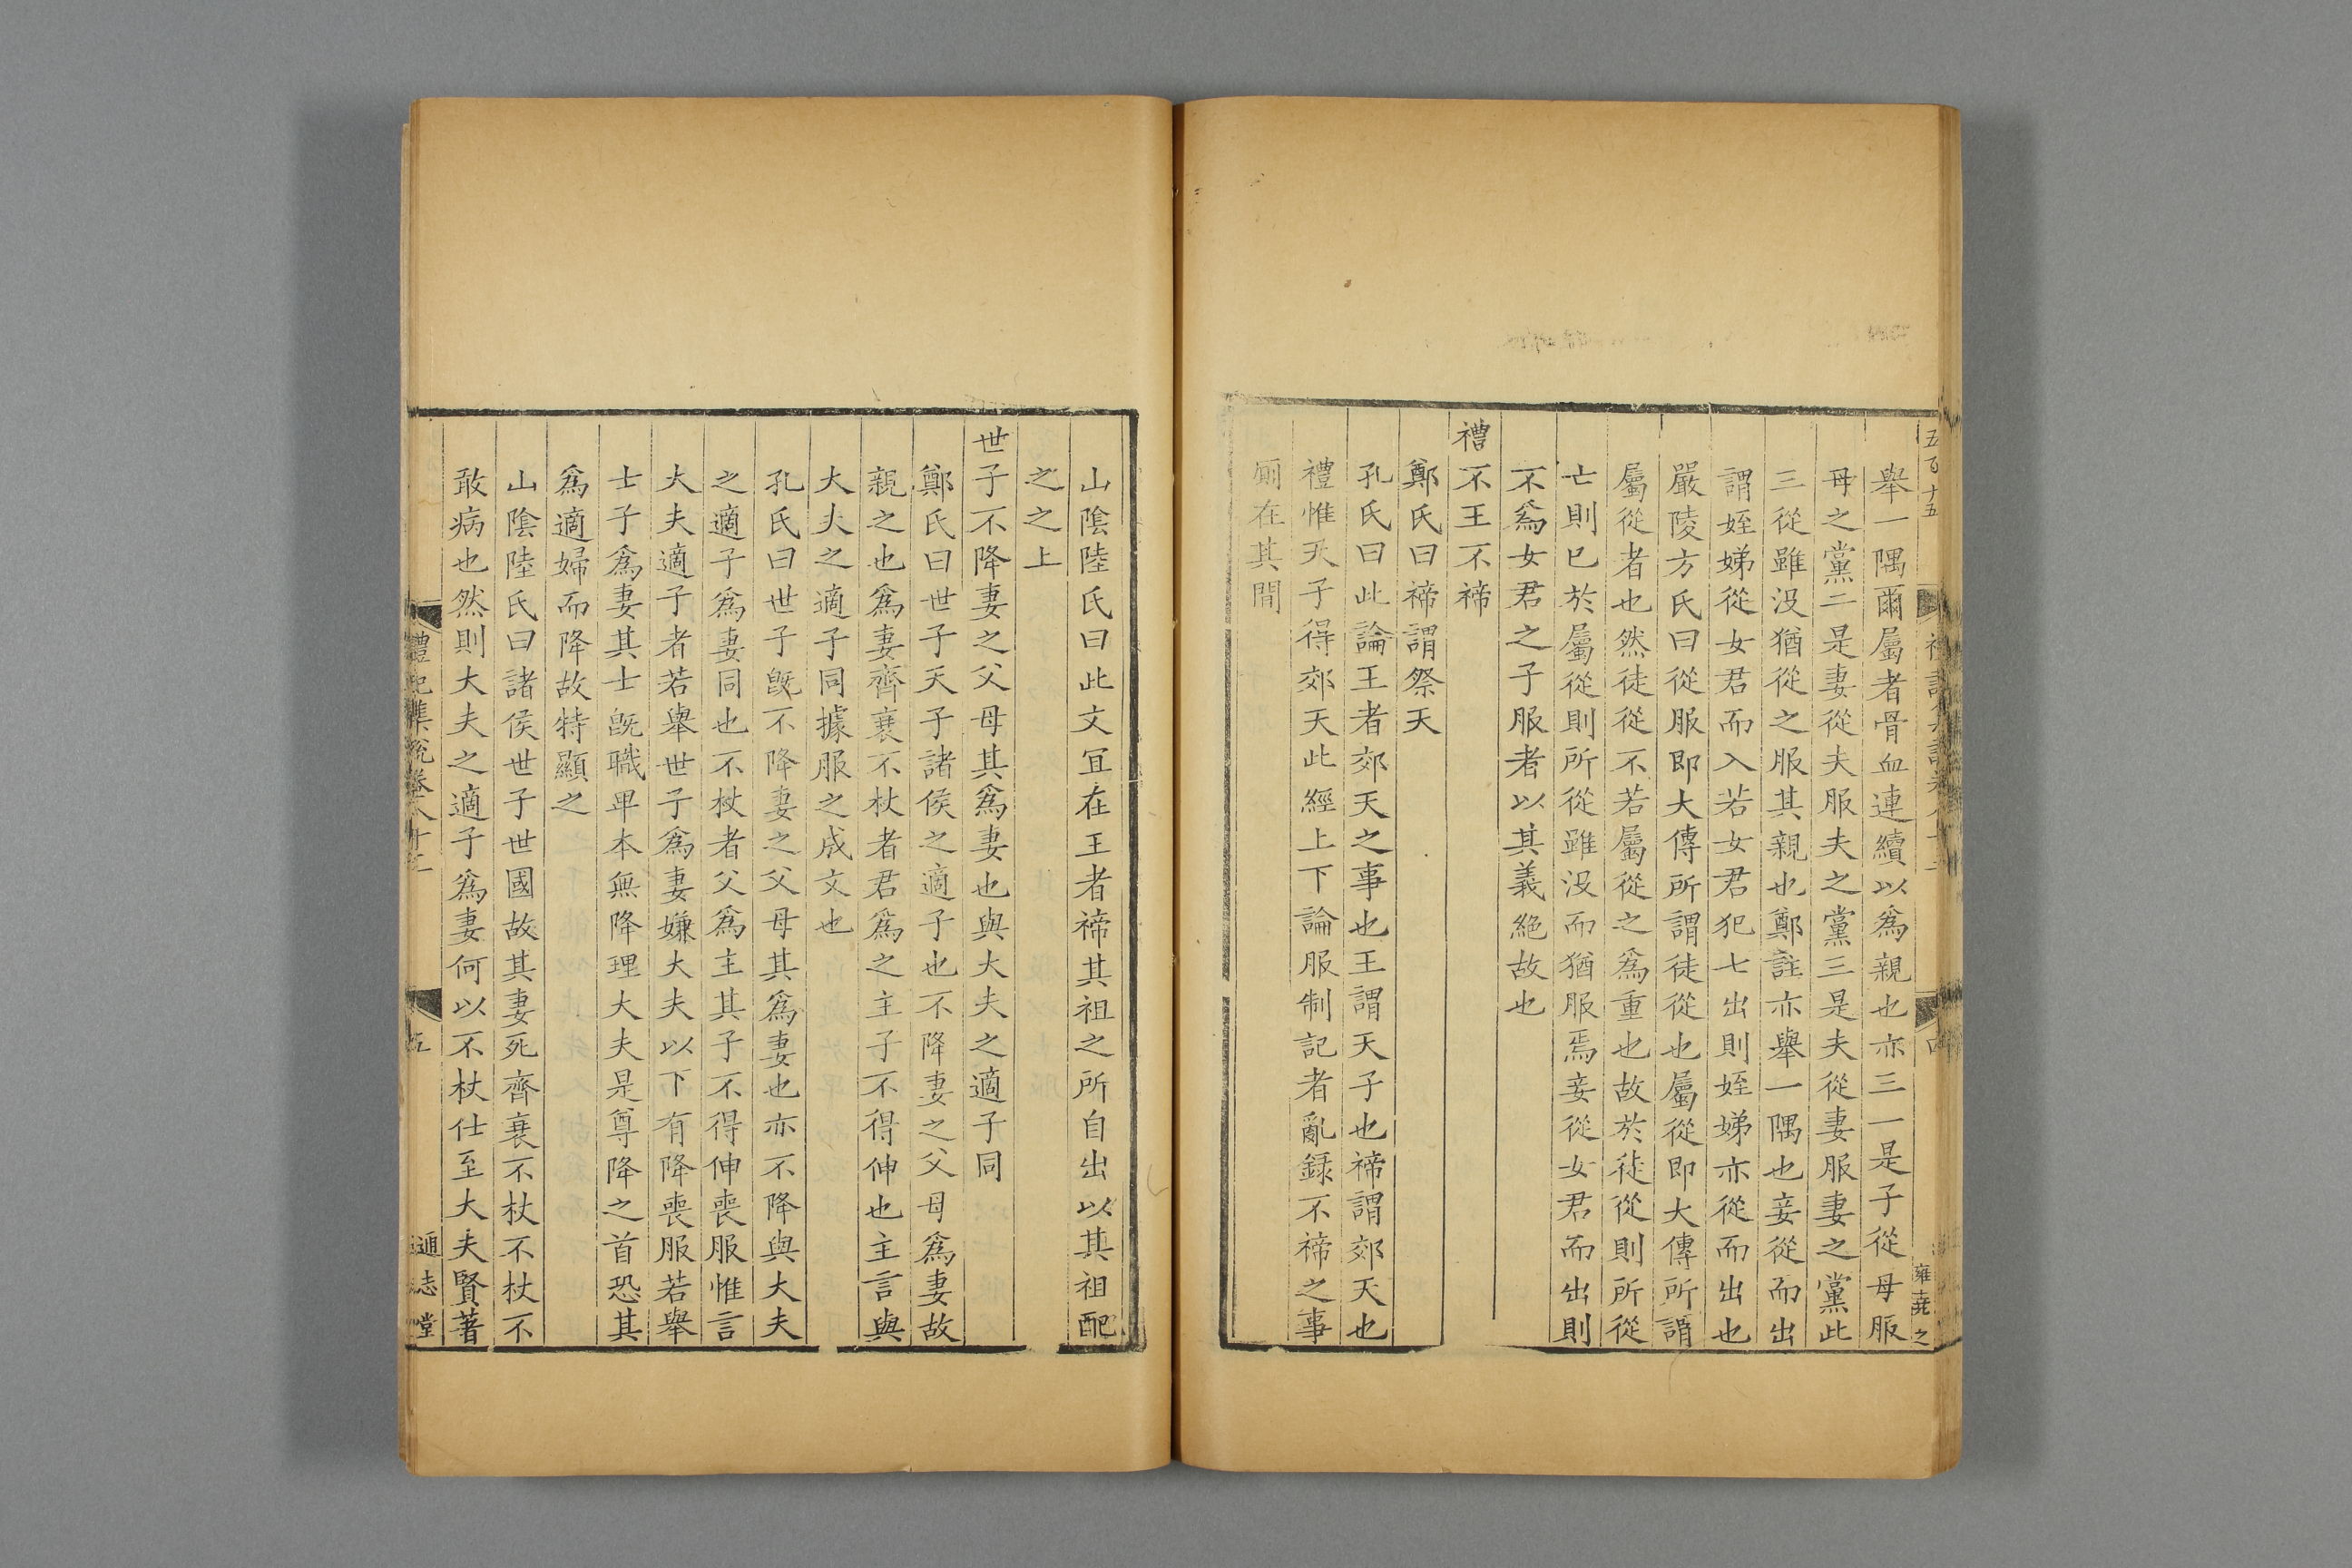 五百十五
舉一隅爾屬者骨血連續以爲親也亦三一是子從母服
母之黨二是妻從夫服夫之黨三是夫從妻服妻之黨此
三從雖没猶從之服其親也鄭註亦舉一隅也妾從而出
謂姪娣從女君而入若女君犯七出則姪娣亦從而出也
嚴陵方氏曰從服即大傳所謂徒從也屬從即大傳所謂
屬從者也然徒從不若屬從之爲重也故於徒從則所從
亡則已於屬從則所從雖没而猶服焉妾從女君而出則
不爲女君之子服者以其義絶故也
禮不王不禘
鄭氏曰禘謂祭天
孔氏曰此論王者郊天之事也王謂天子也禘謂郊天也
禮惟天子得郊天此經上下論服制記者亂録不禘之事
厠在其間
山陰陸氏曰此文冝在王者禘其祖之所自出以其祖配
之之上
世子不降妻之父母其爲妻也與大夫之適子同
鄭氏曰世子天子諸侯之適子也不降妻之父母爲妻故
親之也爲妻齊衰不杖者君爲之主子不得伸也主言與
大夫之適子同據服之成文也
孔氏曰世子旣不降妻之父母其爲妻也亦不降與大夫
之適子爲妻同也不杖者父爲主其子不得伸喪服惟言
大夫適子者若舉世子爲妻嫌大夫以下有降喪服若舉
士子爲妻其士旣職卑本無降理大夫是尊降之首恐其
爲適婦而降故特顯之
山陰陸氏曰諸侯世子世國故其妻死齊衰不杖不杖不
敢病也然則大夫之適子爲妻何以不杖仕至大夫賢著
禮記集説卷八十二
五
通志堂